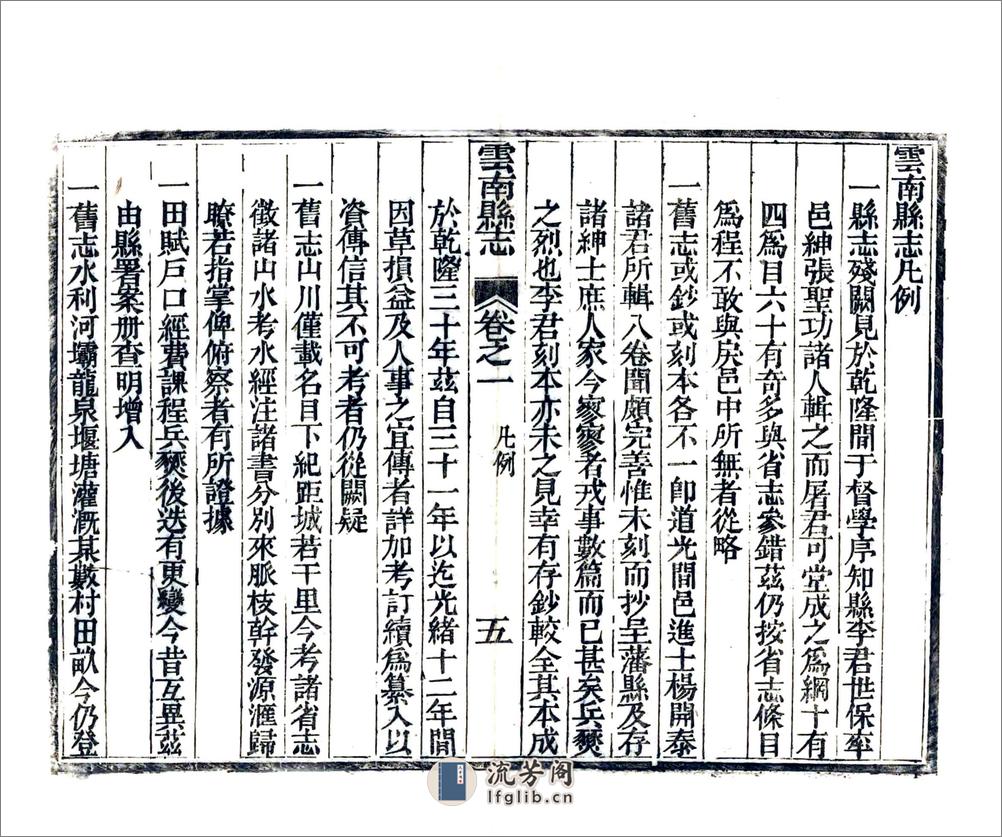 雲南縣志凡例
一縣志殘闕見於乾隆間于督學序知縣李君世保率
邑紳張聖功諸人輯之而屠君可堂成之爲綱十有
四爲目六十有奇多與省志參錯茲仍按省志條目
爲程不敢與戾邑中所無者從略
一舊志或鈔或刻本各不一卽道光間邑進士楊開泰
諸君所輯八卷聞頗完善惟未刻而抄呈藩縣及存
諸紳士庶人家今寥寥者戎事數篇而已甚矣兵燹
之烈也李君刻本亦未之見幸有存鈔較全其本成
雲南縣志 卷之一 凡例 五
於乾隆三十年茲自三十一年以迄光緒十二年間
因革損益及人事之宜傳者詳加考訂續爲纂入以
資傳信其不可考者仍從闕疑
一舊志山川僅載名目下紀距城若干里今考諸省志
徵諸山水考水經注諸書分別來脈枝幹發源滙歸
瞭若指掌俾俯察者有所證據
一田賦戶口經費課程兵燹後迭有更變今昔互異茲
由縣署案册查明增入
一舊志水利河壩龍泉堰塘灌溉某數村田畝今仍登
流芳阁
lfglib.cn